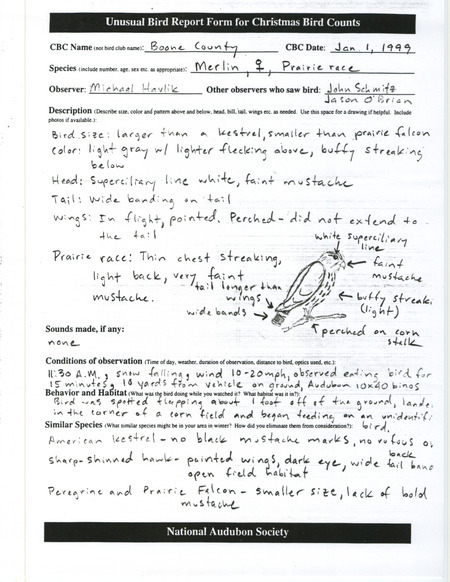 Unusual Bird Report Form for Christmas Bird Counts
CBC Name (not bird club name): Boone County CBC Date: Jan. 1, 1999
Species (include number, age, sex etc. as appropriate): Merlin, ♀, Prairie race
Observer: Michael Havlik Other observers who saw bird: John Schmitz
Jason O'Brian
Description (Describe size, color and pattern above and below, head, bill, tail, wings etc. as needed. Use this space for a drawing if helpful. Include
photos if available.):
Bird size: larger than a kestrel, smaller than prairie falcon
Color: light gray w/ lighter flecking above, buffy streaking
below
Head: Superciliary line white, faint mustache
Tail: Wide banding on tail
Wings: In flight, pointed. Perched - did not extend to
the tail
white superciliary
line
Prairie race: Thin chest streaking,
light back, very faint
mustache.
faint
mustache
tail longer than
wings
buffy streaks
(light)
wide bands
perched on corn
stalk
Sounds made, if any:
none
Conditions of observation (Time of day, weather, duration of observation, distance to bird, optics used, etc.):
11:30 A.M., snow falling, wind 10-20mph, observed eating bird for
15 minutes, 10 yards from vehicle on ground, Audubon 10x40 binos
Behavior and Habitat (What was the bird doing while you watched it? What habitat was it in?):
Bird was spotted flapping about 1 foot off of the ground, lande
in the corner of a corn field and began feeding on an unidentifi
bird.
Similar Species (What similar species might be in your area in winter? How did you eliminate them from consideration?):
American kestrel - no black mustache marks, no rufous on
back
Sharp-shinned hawk - pointed wings, dark eye, wide tail band
open field habitat
Peregrine and Prairie Falcon - smaller size, lack of bold
mustache
National Audubon Society